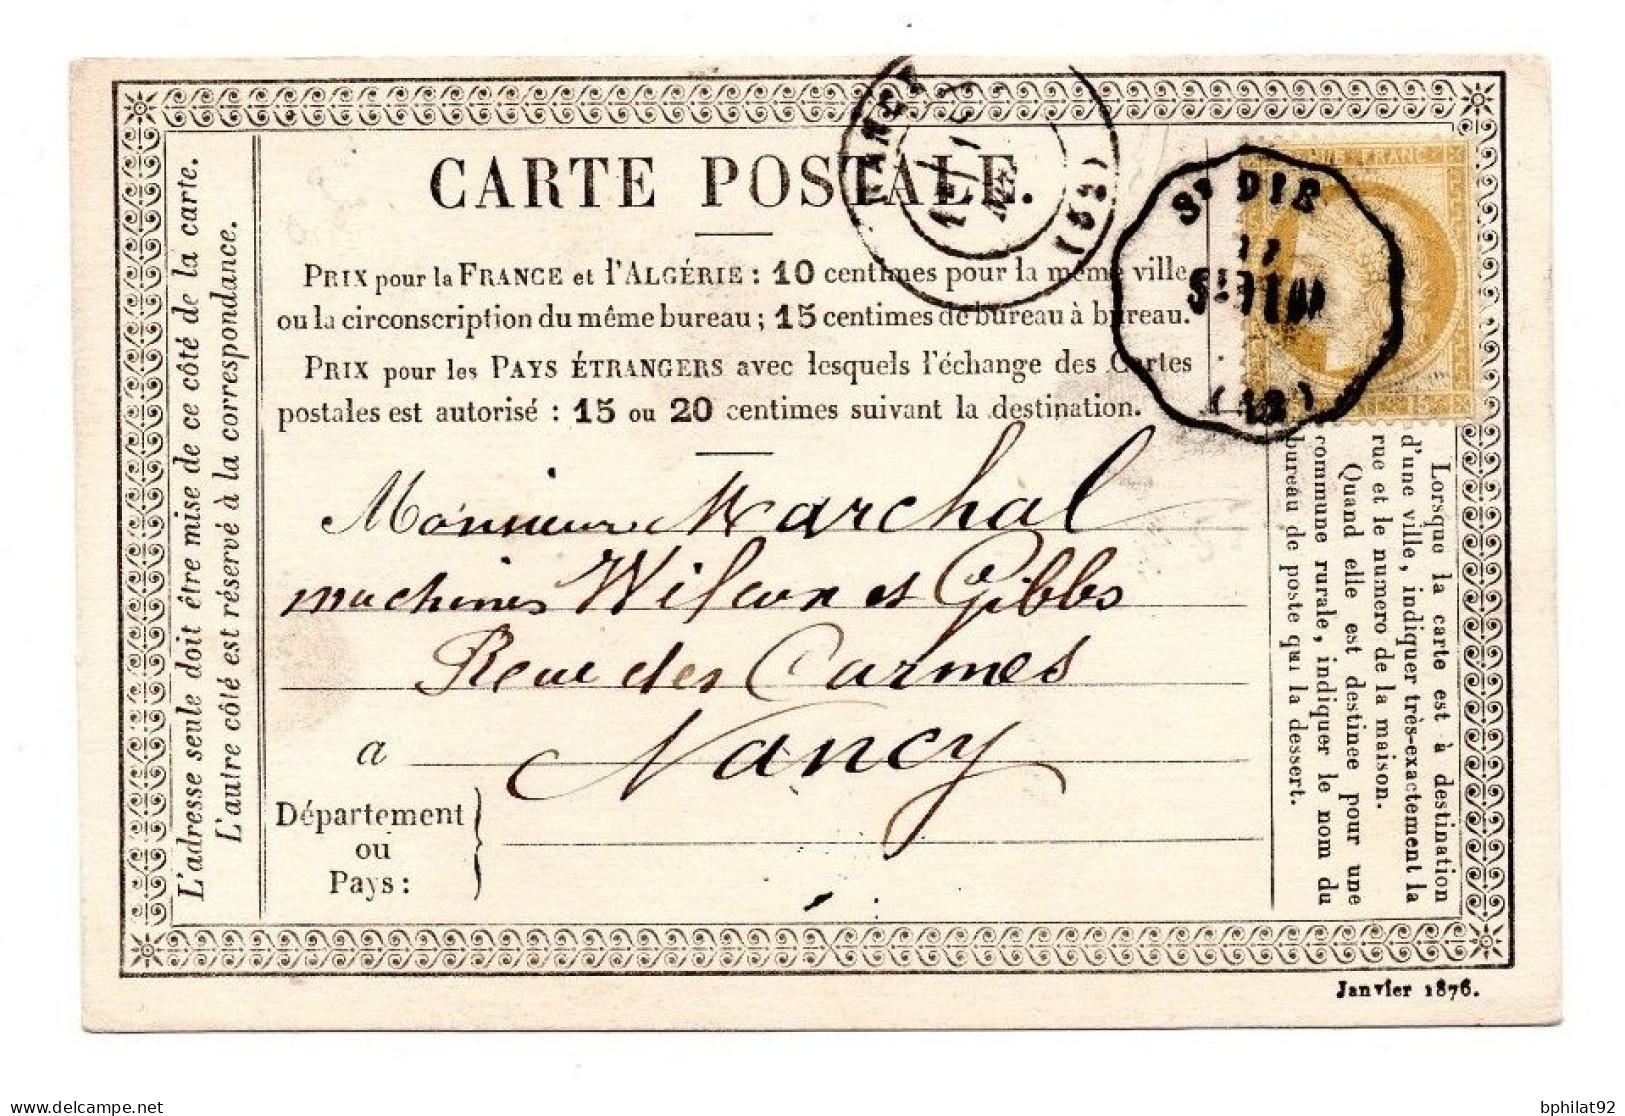 CARTE POSTALE.
PRIX pour la FRANCE et l'ALGÉRIE : 10 centimes pour la même ville
ou la circonscription du même bureau ; 15 centimes de bureau à bureau.
PRIX pour les PAYS ÉTRANGERS avec lesquels l'échange des Cartes
postales est autorisé : 15 ou 20 centimes suivant la destination.
Monsieur Marchal
machines Wilcox et Gibbs
Rue des Carmes
a Nancy
Département
ou
Pays :
L'adresse seule doit être mise de ce côté de la carte.
L'autre côté est réservé à la correspondance.
NANCY
(52)
St DIE
FRANC
15
Lorsque la carte est à destination
d'une ville, indiquer très-exactement la
rue et le numero de la maison.
Quand elle est destinee pour une
commune rurale, indiquer le nom du
bureau de poste qui la dessert.
Janvier 1876.
bphilat92